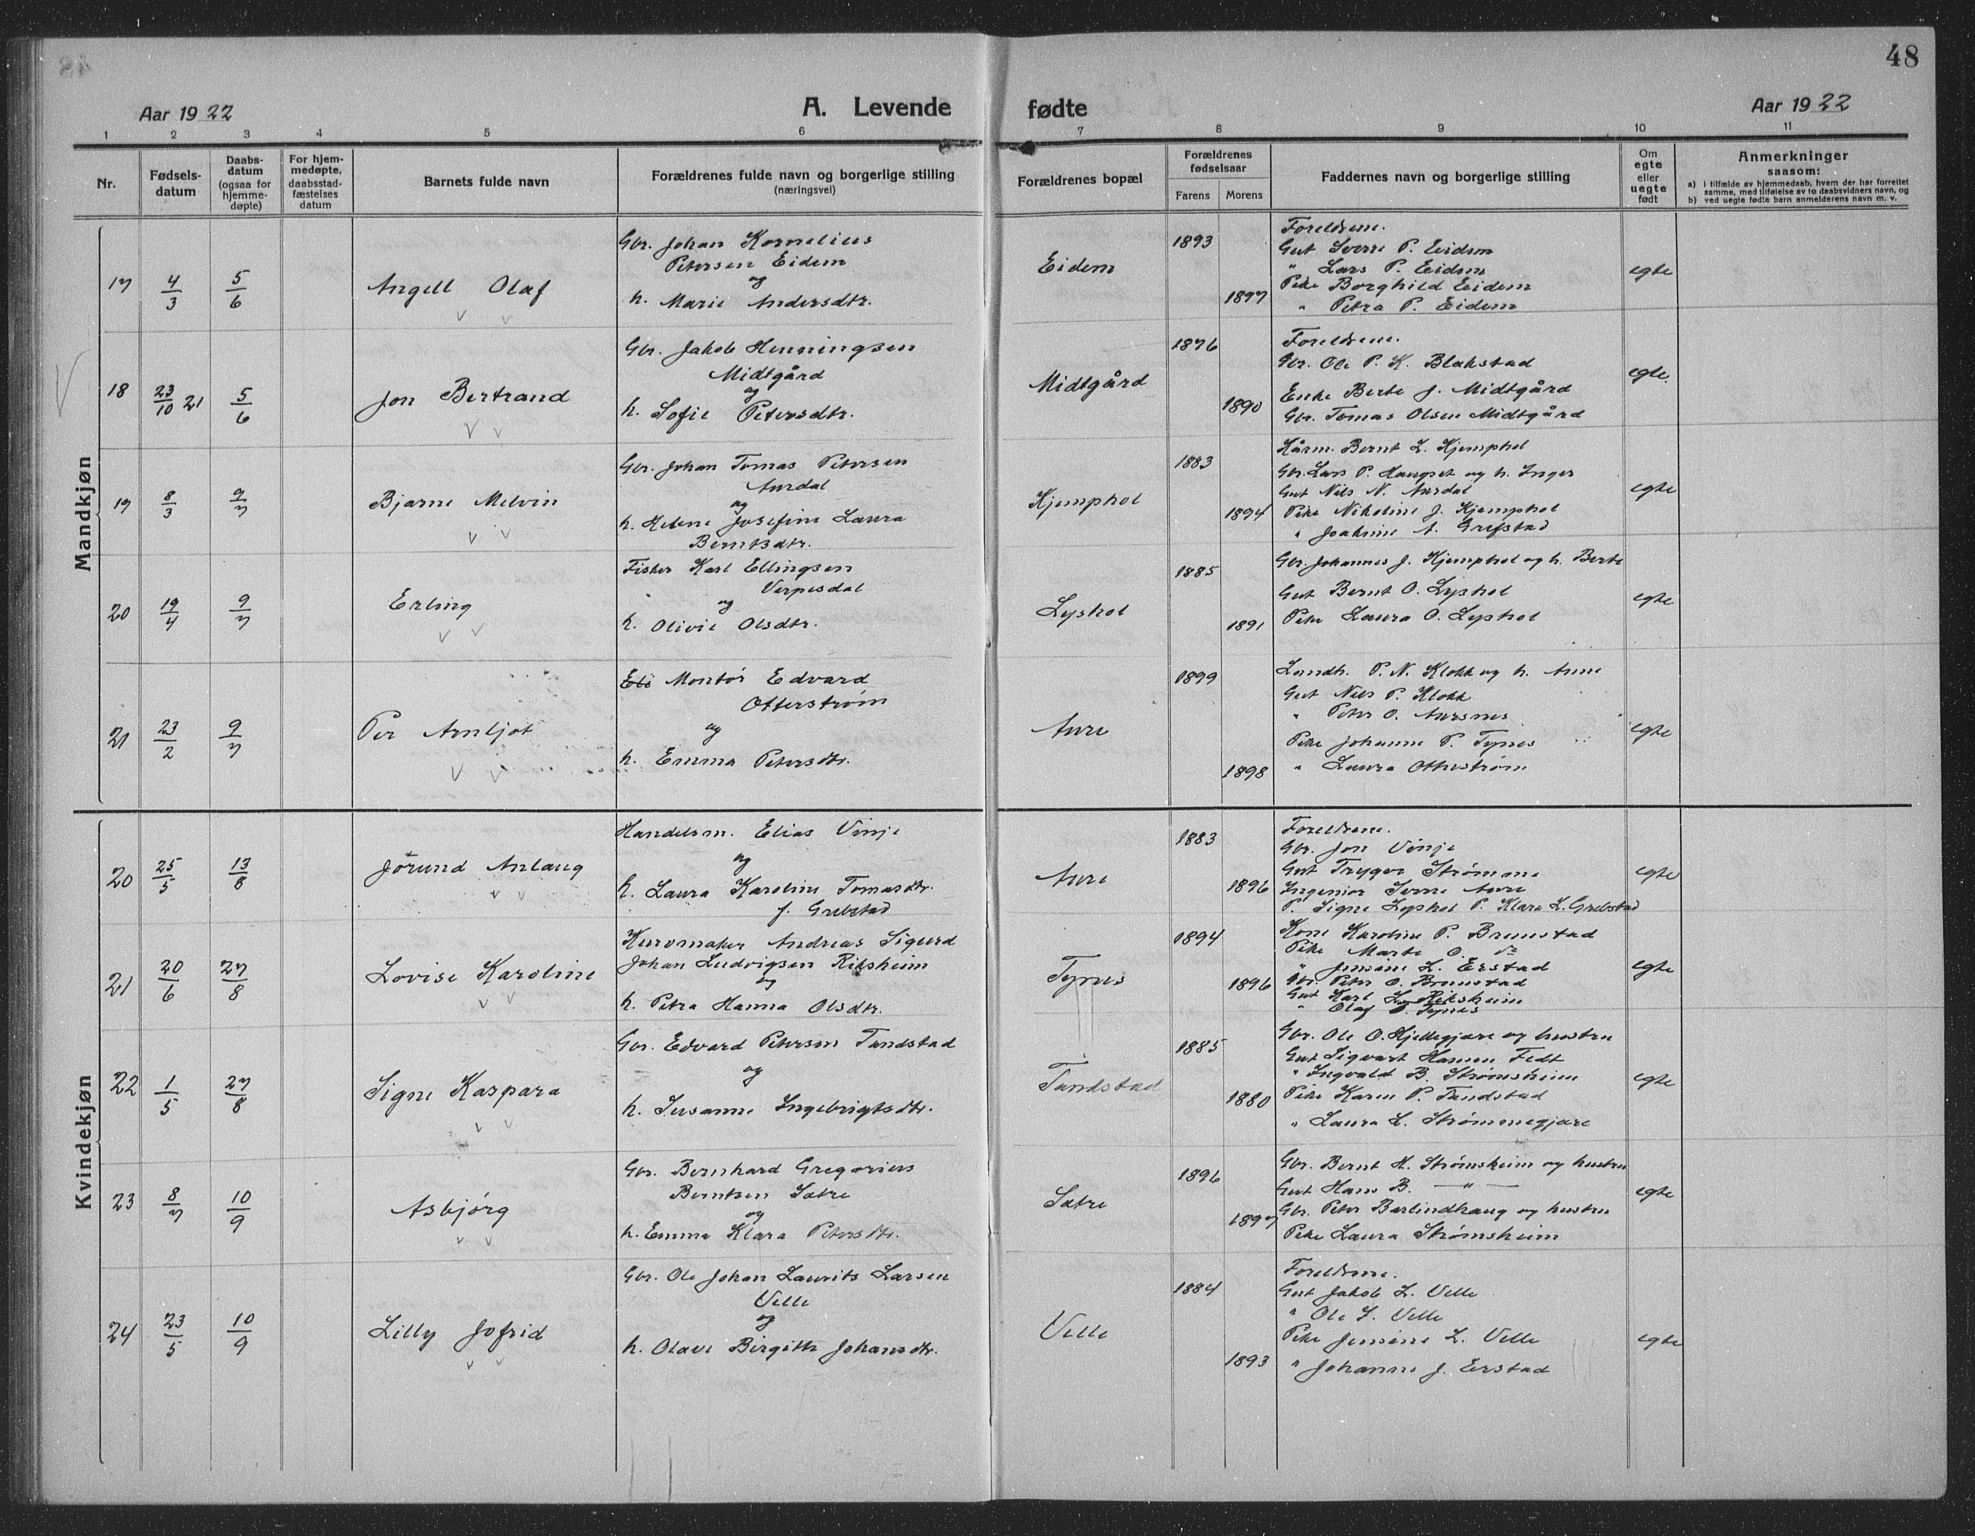 48
Aar 1922
A. Levende
fødte
Aar 1922
1 2 3 4 5 6 7 8 9 10 11
Nr.
Fødsels-
datum
Daabs-
datum
(ogsaa for
hjemme-
døpte)
For hjem-
medøpte,
daabsstad-
fæstelses
datum
Barnets fulde navn
Forældrenes fulde navn og borgerlige stilling
(næringsvei)
Forældrenes bopæl
Forældrenes
fødselsaar
Farens Morens
Faddernes navn og borgerlige stilling
Om
egte
eller
uegte
født
Anmerkninger
saasom:
a) i tilfælde av hjemmedaab, hvem der har forrettet
samme, med tilføielse av to daabsvidners navn, og
b) ved uegte fødte barn anmelderens navn m. v.
Mandkjøn
17 4/3 5/6 Angell Olaf
Gbr. Johan Kornelius
Petersen Eidem
og
h. Marie Andersdtr.
Eidem 1893 1897
Foreldrene.
Gut Sverre P. Eidem
" Lars P. Eidem
Pike Borghild Eidem
" Petra P. Eidem
egte
18 23/10 21 5/6 Jon Bertrand
Gbr. Jakob Henningsen
Midtgård
og
h. Sofie Petersdtr.
Midtgård 1876 1890
Foreldrene.
Gbr. Ole P. K. Blakstad
Enke Berte J. Midtgård
Gbr. Tomas Olsen Midtgård
egte.
19 8/3 9/7 Bjarne Melvin
Gbr. Johan Tomas Petersen
Aurdal
og
h. Helene Josefine Laura
Berntsdtr.
Kjemphol 1883 1894
Kårm. Bernt L. Kjemphol
Gbr. Lars P. Haugset og h. Inger
Gut Nils N. Aurdal
Pike Nikoline J. Kjemphol
" Joakine A. Grebstad
egte
20 19/4 9/7 Erling
Fisker Karl Ellingsen
Verpesdal
og
h. Olivie Olsdtr.
Lyshol 1885 1891
Gbr. Johannes J. Kjemphol og h. Berte
Gut Bernt O. Lyshol
Pike Laura O. Lyshol
egte
21 23/2 9/7 Per Arnljot
Montør Edvard
Otterstrøm
og
h. Emma Petersdtr.
Aure 1899 1898
Landh. P. N. Klokk og h. Anne
Gut Nils P. Klokk
" Peter O. Aursnes
Pike Johanne P. Tynes
" Laura Otterstrøm
egte
Kvindekjøn
20 25/5 13/8 Jørund Anlaug
Handelsm. Elias Vinje
og
h. Laura Karoline Tomasdtr.
f. Grebstad
Aure 1883 1896
Foreldrene.
Gbr. Jon Vinje
Gut Trygve Strømme
Ingeniør Sverre Aure
P. Signe Lyshol P. Klara L. Grebstad
egte
21 20/6 27/8 Lovise Karoline
Kurvmaker Andreas Sigurd
Johan Ludvigsen Riksheim
og
h. Petra Hanna Olsdtr.
Tynes 1894 1896
Kone Karoline P. Brunstad
Pike Marte O. do
" Jensine L. Erstad
Gbr. Peter O. Brunstad
Gut Karl L. Riksheim
" Olaf O. Tynes
egte
22 1/5 27/8 Signe Kaspara
Gbr. Edvard Petersen Tandstad
og
h. Susanne Ingebrigtsdtr.
Tandstad 1885 1880
Gbr. Ole O. Hjellegjære og hustru
Gut Sigvart Hansen Fedt
" Ingvald B. Strømsheim
Pike Karen P. Tandstad
" Laura L. Strømmegjære
egte
23 8/7 10/9 Asbjørg
Gbr. Bernhard Gregorius
Berntsen Sætre
og
h. Emma Klara Petersdtr.
Sætre 1896 1897
Gbr. Bernt H. Strømsheim og hustru
Gut Hans B. — " —
Gbr. Peter Barlindhaug og hustru
Pike Laura Strømsheim
egte
24 23/5 10/9 Lilly Jofrid
Gbr. Ole Johan Laurits Larsen
Velle
og
h. Olave Birgitte Johansdtr.
Velle 1884 1893
Foreldrene.
Gut Jakob L. Velle
" Ole J. Velle
Pike Jensine L. Velle
" Johanne J. Erstad
egte